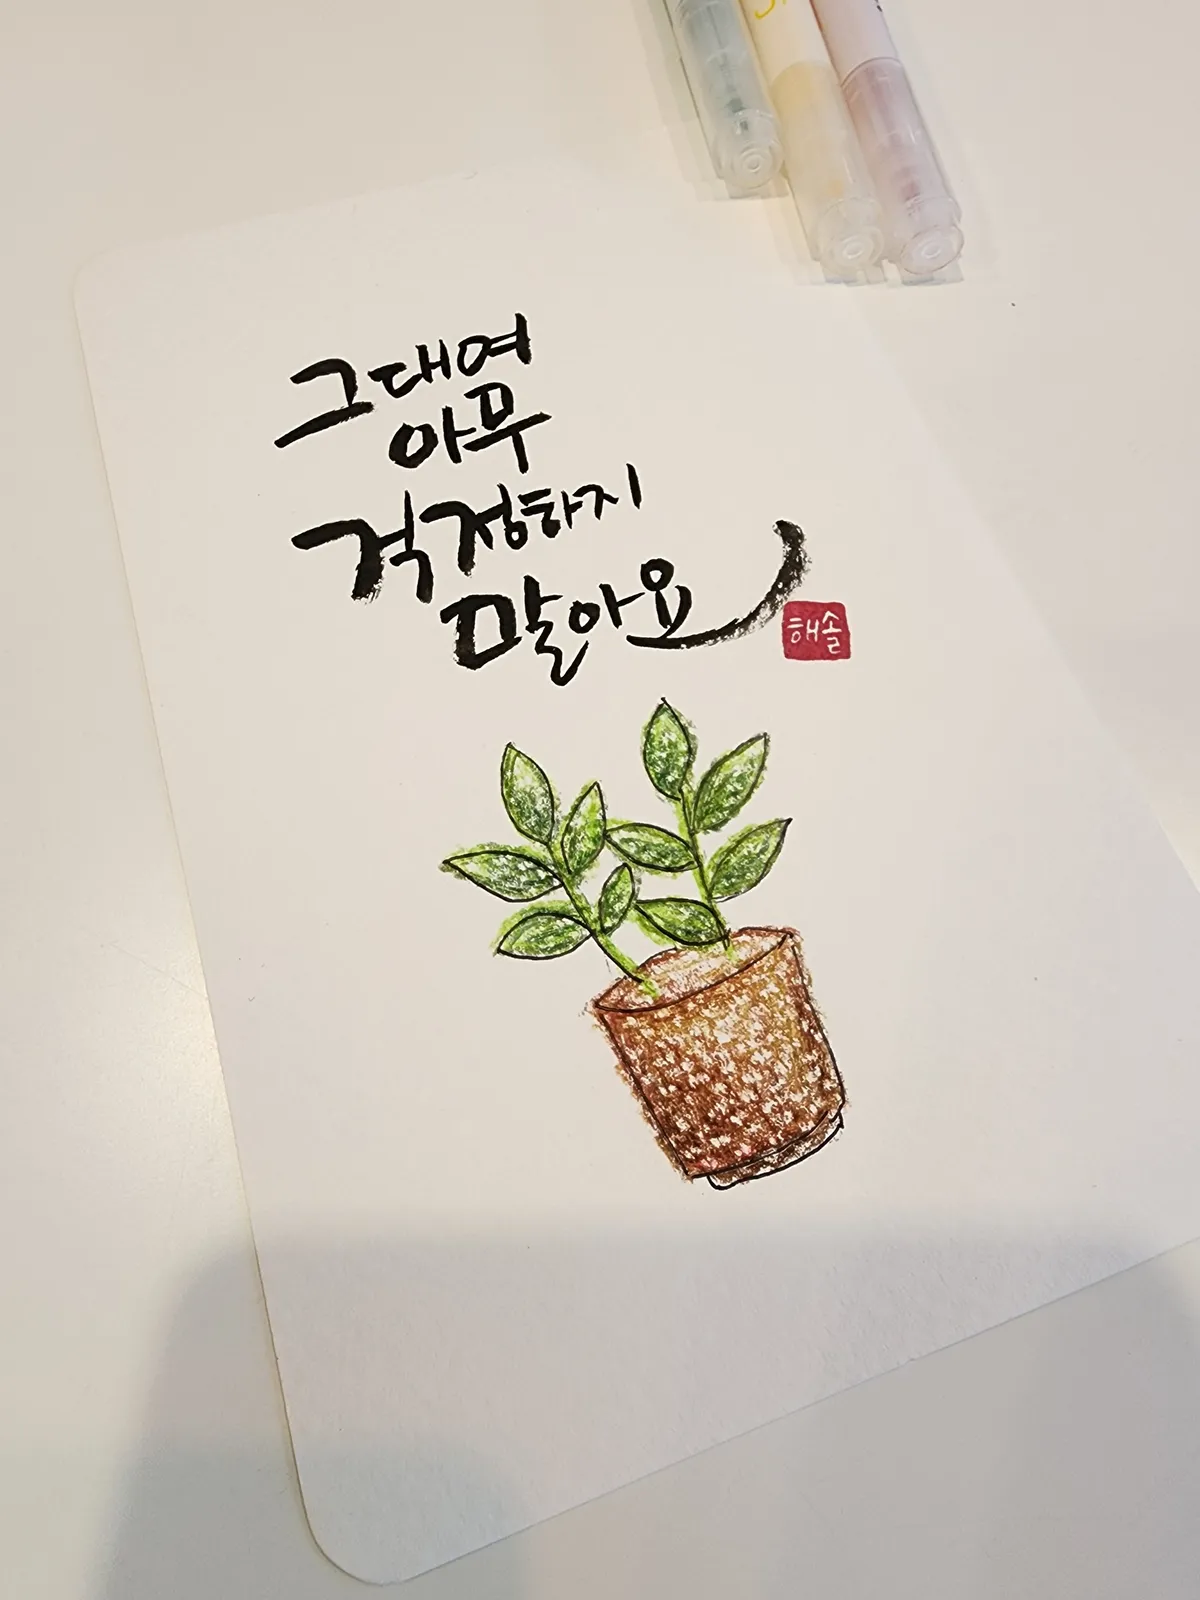 그대여
아무
걱정하지
말아요
해솔